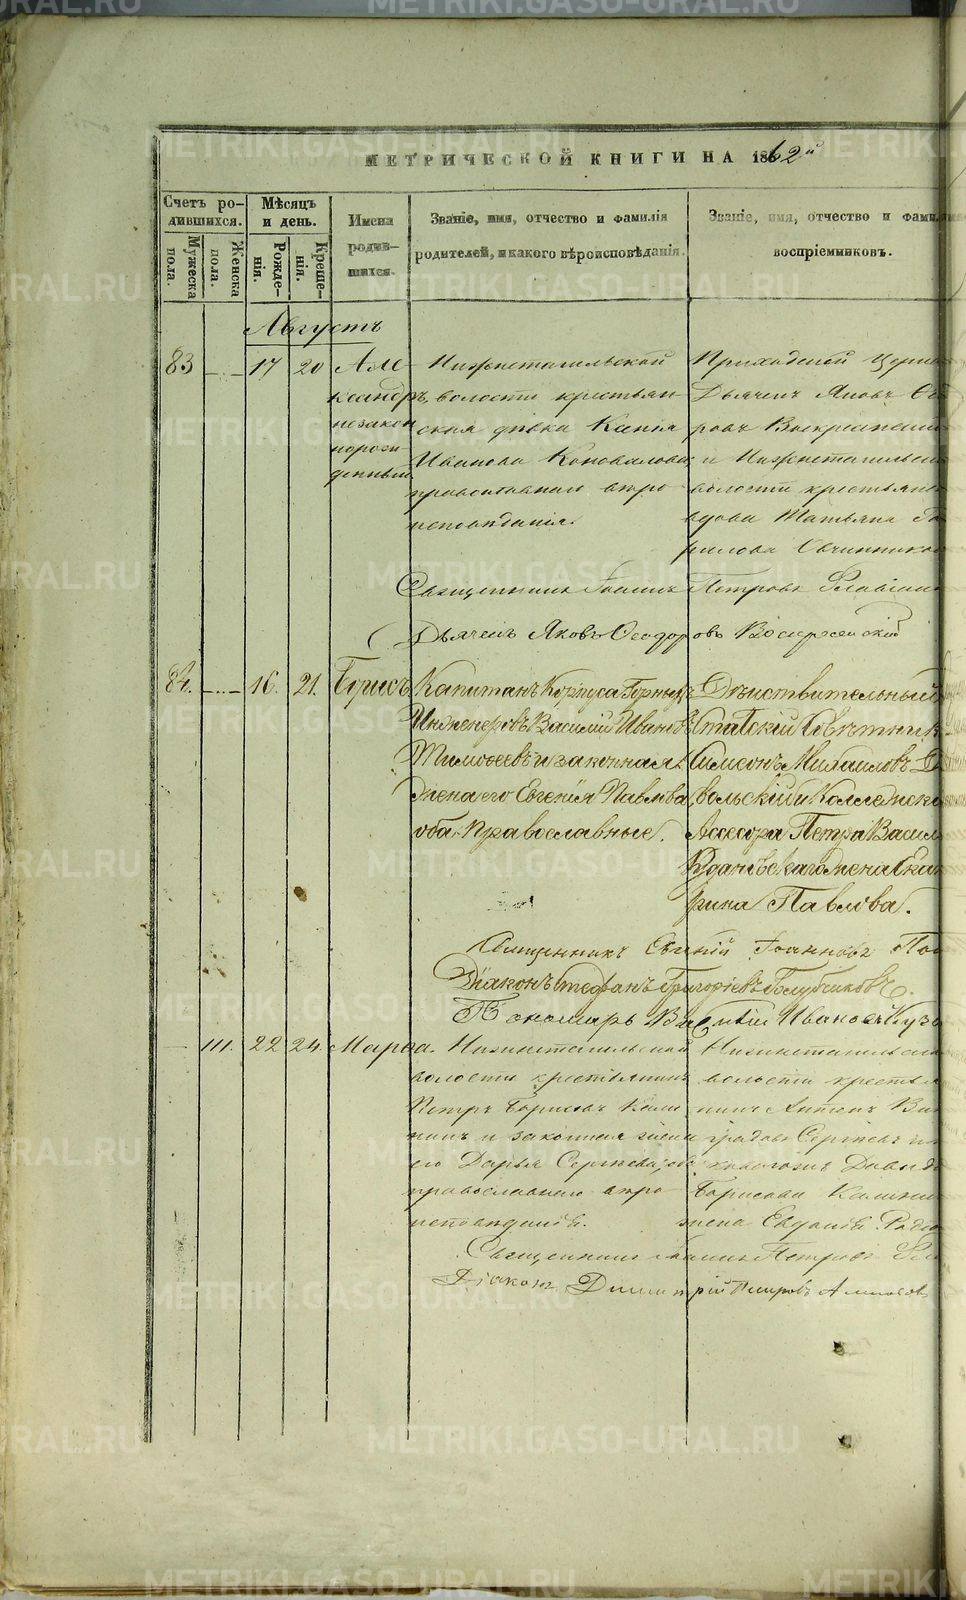 METRIKI.GASO-URAL.RU
МЕТРИЧЕСКОЙ КНИГИ НА 1862й
Счетъ ро-
дившихся.
Мужеска
пола.
Женска
пола.
Мѣсяцъ
и день.
Рожде-
нія.
Креще-
нія.
Имена
родив-
шихся.
Званіе, имя, отчество и фамилія
родителей, и какого вѣроисповѣданія.
Званіе, имя, отчество и фами
воспріемниковъ.
Августъ
83 17 20 Але
ксандръ,
незакон
норож
денный
Нижнетагильской
волости крестьян
ская дѣвка
Иванова Коновалова
православнаго вѣро
исповѣданія.
Приходской Церк
Дьячекъ Яковъ Ѳео
ровъ Воскресенскі
и Нижнетагильск
волости крестьянс
вдова Татьяна
рилова Овчинников
Священникъ Іоаннъ Петровъ
Дьячекъ Яковъ Ѳеодоровъ Воскресенскій
84. 16. 21. Борисъ
Капитанъ Корпуса Горныхъ
Инженеровъ Василій Ивановъ
Тимофеевъ и законная
жена его Евгенія Павлова
оба Православные.
Дѣйствительный
Статскій Совѣтник
Симеонъ Михаиловъ Д
вольскій и Коллежск
Ассесора Петра Васил
Ждановскаго жена Ека
рина Павлова.
Священникъ Евгеній Іоанновъ По
Діаконъ Стефанъ Григоріевъ Голубчиковъ.
Пономарь Василій Ивановъ Кузо
111. 22 24 Марѳа.
Нижнетагильской
волости крестьянинъ
Петръ Борисовъ Кали
нинъ и законная жена
его Дарья Сергѣева, оба
православнаго вѣро
исповѣданія.
Нижнетагильск
волости крестья
нинъ Антонъ Ви
градовъ Сергѣевъ
Давыд
Борисова Калин
жена Евдокія Роді
Священникъ Іоаннъ Петровъ
Діаконъ Димитрій Петровъ